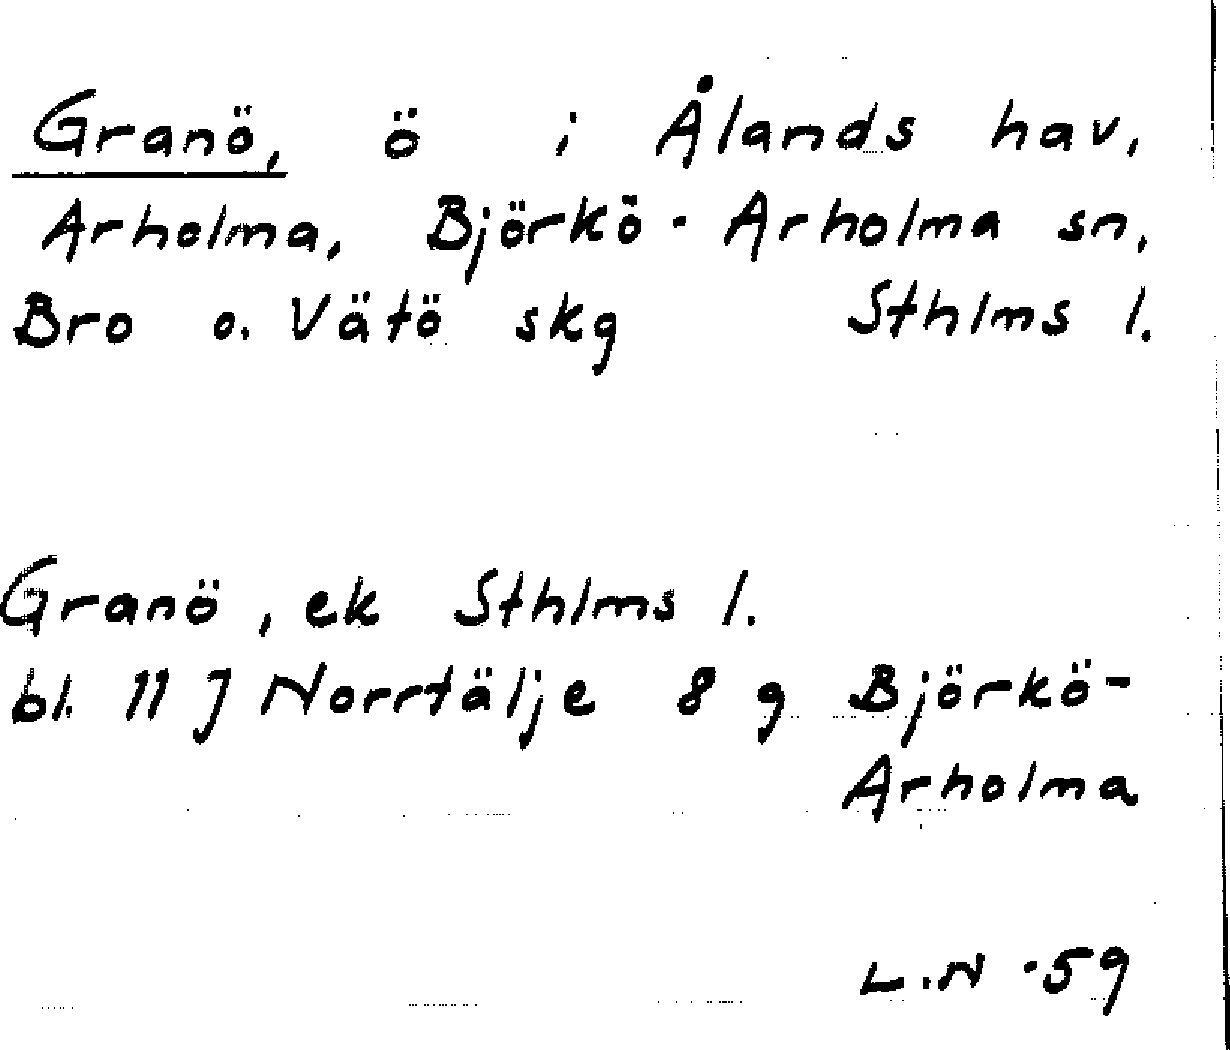 Granö, ö i Ålands hav,
Arholma, Björkö-Arholma sn,
Bro o. Vätö skg Sthlms l.
Granö, ek Sthlms l.
bl. 11 J Norrtälje 8 g Björkö-
Arholma
L.N -59